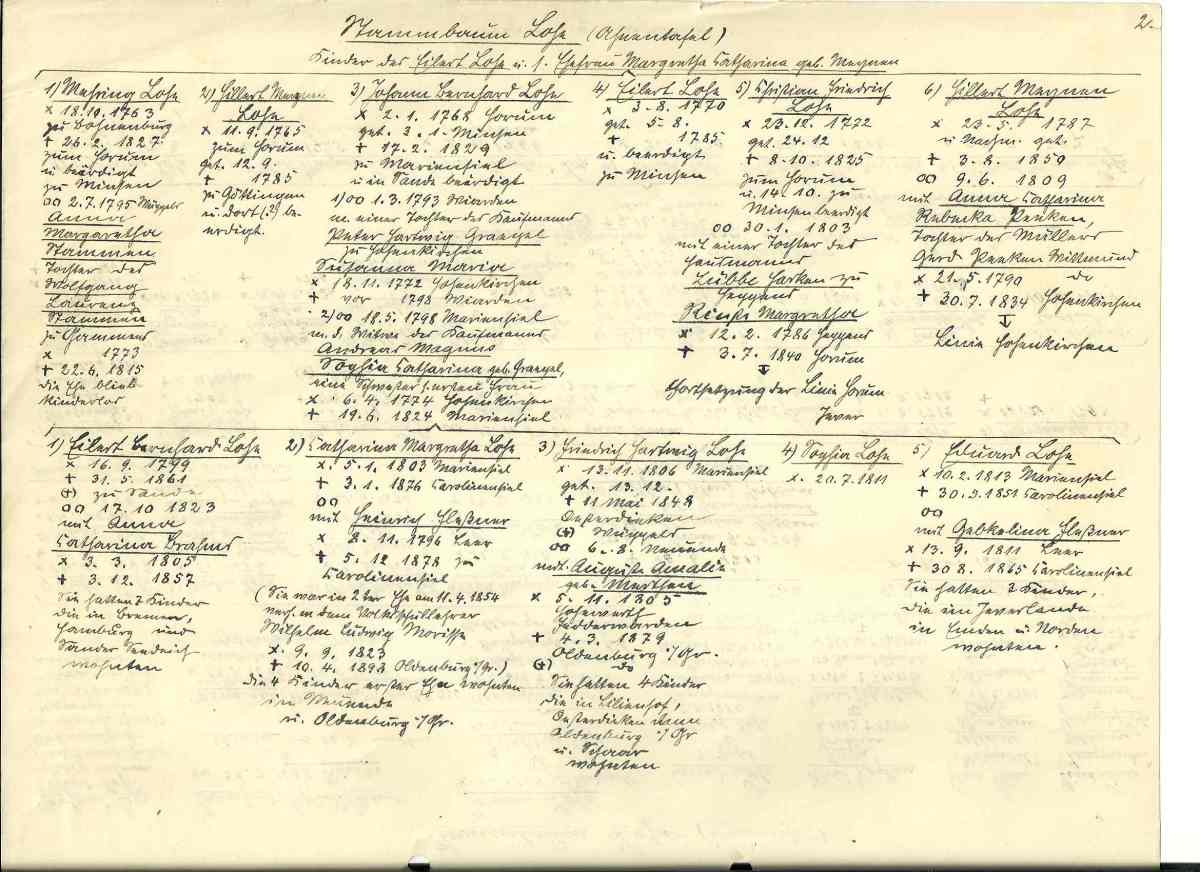 2.
Stammbaum Lohse (Ahnentafel)
Kinder des Eilert Lohse u. s. Ehefrau Margretha Catharina geb. Meynen
1) Mehring Lohse
x 18.10.1763
zu Bohnenburg
+ 26.2. 1827.
zum Horum
u beerdigt
zu Minsen
oo 2.7.1795 Wüppels
Anna
Margaretha
Stammen
Tochter des
Wolfgang
Laurenz
Stammen
zu Gammens
x 1773
+ 22.6. 1815
die Ehe blieb
kinderlos
2) Hillert Meynen
Lohse
x 11.9. 1765
zum Horum
get. 12.9.
+ 1785
zu Göttingen
u. dort (?) be-
erdigt.
3) Johann Bernhard Lohse
x 2.1. 1768 Horum
get. 3.1. Minsen
+ 17.2. 1829
zu Mariensiel
u in Sande beerdigt
1) oo 1.3. 1793 Wiarden
m. einer Tochter des Kaufmanns
Peter Hartwig Graepel
zu Hohenkirchen
Susanna Maria
x 18.11. 1772 Hohenkirchen
+ vor 1798 Wiarden
2) oo 18.5. 1798 Mariensiel
m. d. Witwe des Kaufmanns
Andreas Magnus
Sophia Catharina geb. Graepel,
eine Schwester s. ersten Frau
x 6.4. 1774 Hohenkirchen
+ 19.6. 1824 Mariensiel
4) Eilert Lohse
x 3.8. 1770
get. 5.8.
+ 1785
u. beerdigt
zu Minsen
5) Christian Friedrich
Lohse
x 23.12. 1772
get. 24.12
+ 8.10. 1825
zum Horum
u. 14.10. zu
Minsen beerdigt
oo 30.1. 1803
mit einer Tochter des
Hausmanns
Lübbe Harken zu
Heppens
Rinst Margretha
x 12.2. 1786 Heppens
+ 3.7. 1840 Horum
↓
Fortsetzung der Linie Horum
Jever
6) Hillert Meynen
Lohse
x 23.5. 1787
u Nachm. get.
+ 3.8. 1859
oo 9.6. 1809
mit Anna Catharina
Rebecka Peeken,
Tochter des Müllers
Gerd Peeken Wittmund
x 21.5.1790 do
+ 30.7. 1834 Hohenkirchen
↓
Linie Hohenkirchen
1) Eilert Bernhard Lohse
x 16.9. 1799
+ 31.5. 1861
(+) zu Sande
oo 17.10 1823
mit Anna
Catharina Brahms
x 3.3. 1805
+ 3.12. 1857
Sie hatten 7 Kinder
die in Bremen,
Hamburg und
Sander Seedeich
wohnten
2) Catharina Margretha Lohse
x. 5.1. 1803 Mariensiel
+ 3.1. 1876 Carolinensiel
oo
mit Heinrich Fleßner
x 8.11. 1796 Leer
+ 5.12 1878 zu
Carolinensiel
(Sie war in 2ter Ehe am 11.4.1854
verh. m dem Volksschullehrer
Wilhelm Ludwig Morisse
x. 9.9. 1823
+ 10.4. 1898 Oldenburg i/Gr.)
die 4 Kinder erster Ehe wohnten
in Neuende
u. Oldenburg i/Gr.
3) Friedrich Hartwig Lohse
x 13.11. 1806 Mariensiel
get. 13.12.
+ 11 Mai 1848
Oesterdieken
(+) Wüppels
oo 6.8. Neuende
mit Auguste Amalie
geb. Martsen
x 5.11. 1805
Hohewerth
Fedderwarden
+ 4.3. 1879
Oldenburg i/Gr.
(+) do
Sie hatten 4 Kinder
die in Lilienhof,
Oesterdieken
Oldenburg i/Gr
u. Schaar
wohnten
4) Sophia Lohse
x. 20.7.1811
5) Eduard Lohse
x 10.2. 1813 Mariensiel
+ 30.9.1851 Carolinensiel
oo
mit Gebkelina Fleßner
x 13.9. 1811 Leer
+ 30 8. 1865 Carolinensiel
Sie hatten 3 Kinder,
die im Jeverlande
in Emden u. Norden
wohnten.